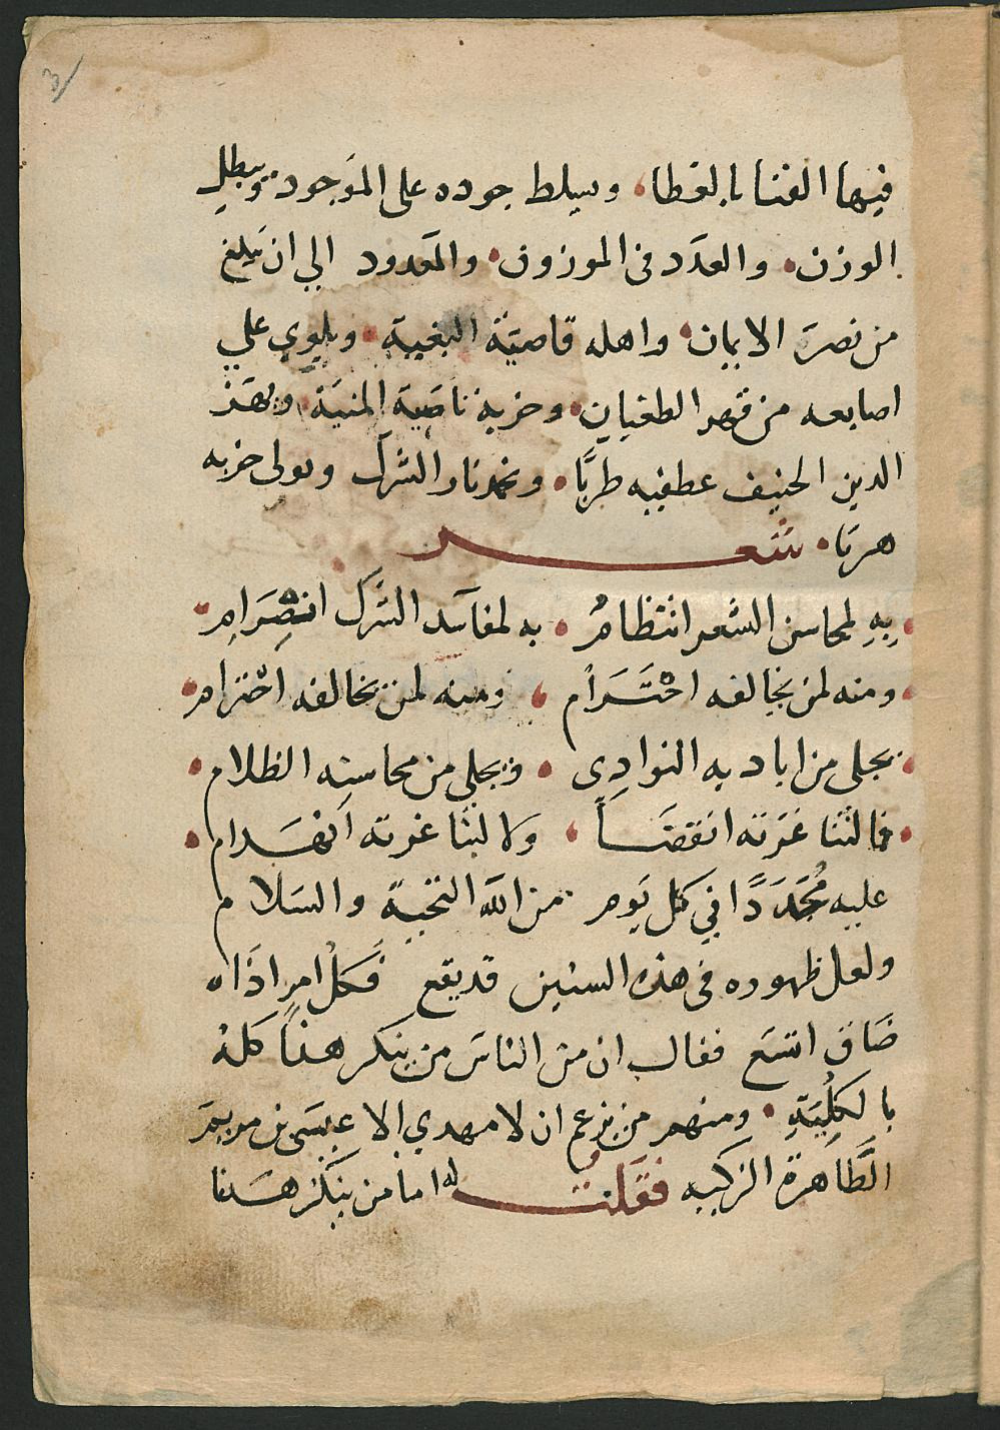 3
فيها الغنا بالغطا، وسلط جوده على الموجود ويبطل
الوزن • والعدد فى الموزون • والمعدود الي ان يبلغ
من نصر الايمان • واهله قاصية البغية • ويلوي علي
اصابعه من قهر الطغيان • وحزبه ناصية المنية، ويهتز
الدين الحنيف عطفيه طربًا • وتخمد نار الشرك وتولى حزبه
هربًا • شعر
• بِهِ لمحاسن الشعر انتظامُ • به لمفاسد الشرك انصِرَامِ •
• ومنه لمن يخالفه احْتَرَام ، ومنه لمن يخالفه اخترام •
• تجلى من اياديه النوادِى • وتجلى من محاسنه الظلام •
• فما لثنا غرته انقضَاً ، ولا لبنا عزته انهدام •
عليه مُجَدَدًا في كل يوم من الله التحية والسلام
ولعل ظهوره فى هذه السنين قد يقع فكل امرٍ اذا
ضَاق اتسَع فقال ان من الناس من ينكر هذا كله
بالكلِيَةِ • ومنهم من يزعم ان لا مهدي الا عيسَى بن مريم
الطَاهرة الزكيه فقلت له اما من ينكر هذا